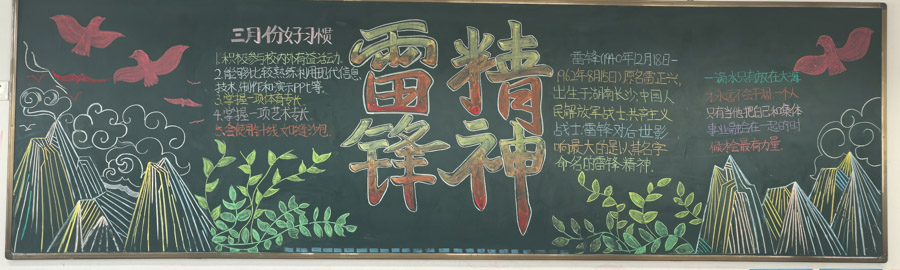 三月份好习惯
1.积极参与校内外有益活动.
2.能够比较熟练利用现代信息
技术,制作和演示PPT等.
3.掌握一项体育专长
4.掌握一项艺术专长.
雷锋
精神
雷锋(1940年12月18日-
1962年8月15日)原名雷正兴,
出生于湖南长沙,中国人
民解放军战士共产主义
战士,雷锋对后世影
响最大的是以其名字
命名的雷锋精神.
一滴水只有放在大海
才永远不会干涸,一个人
只有当他把自己和集体
事业融合在一起的时
候才会最有力量.